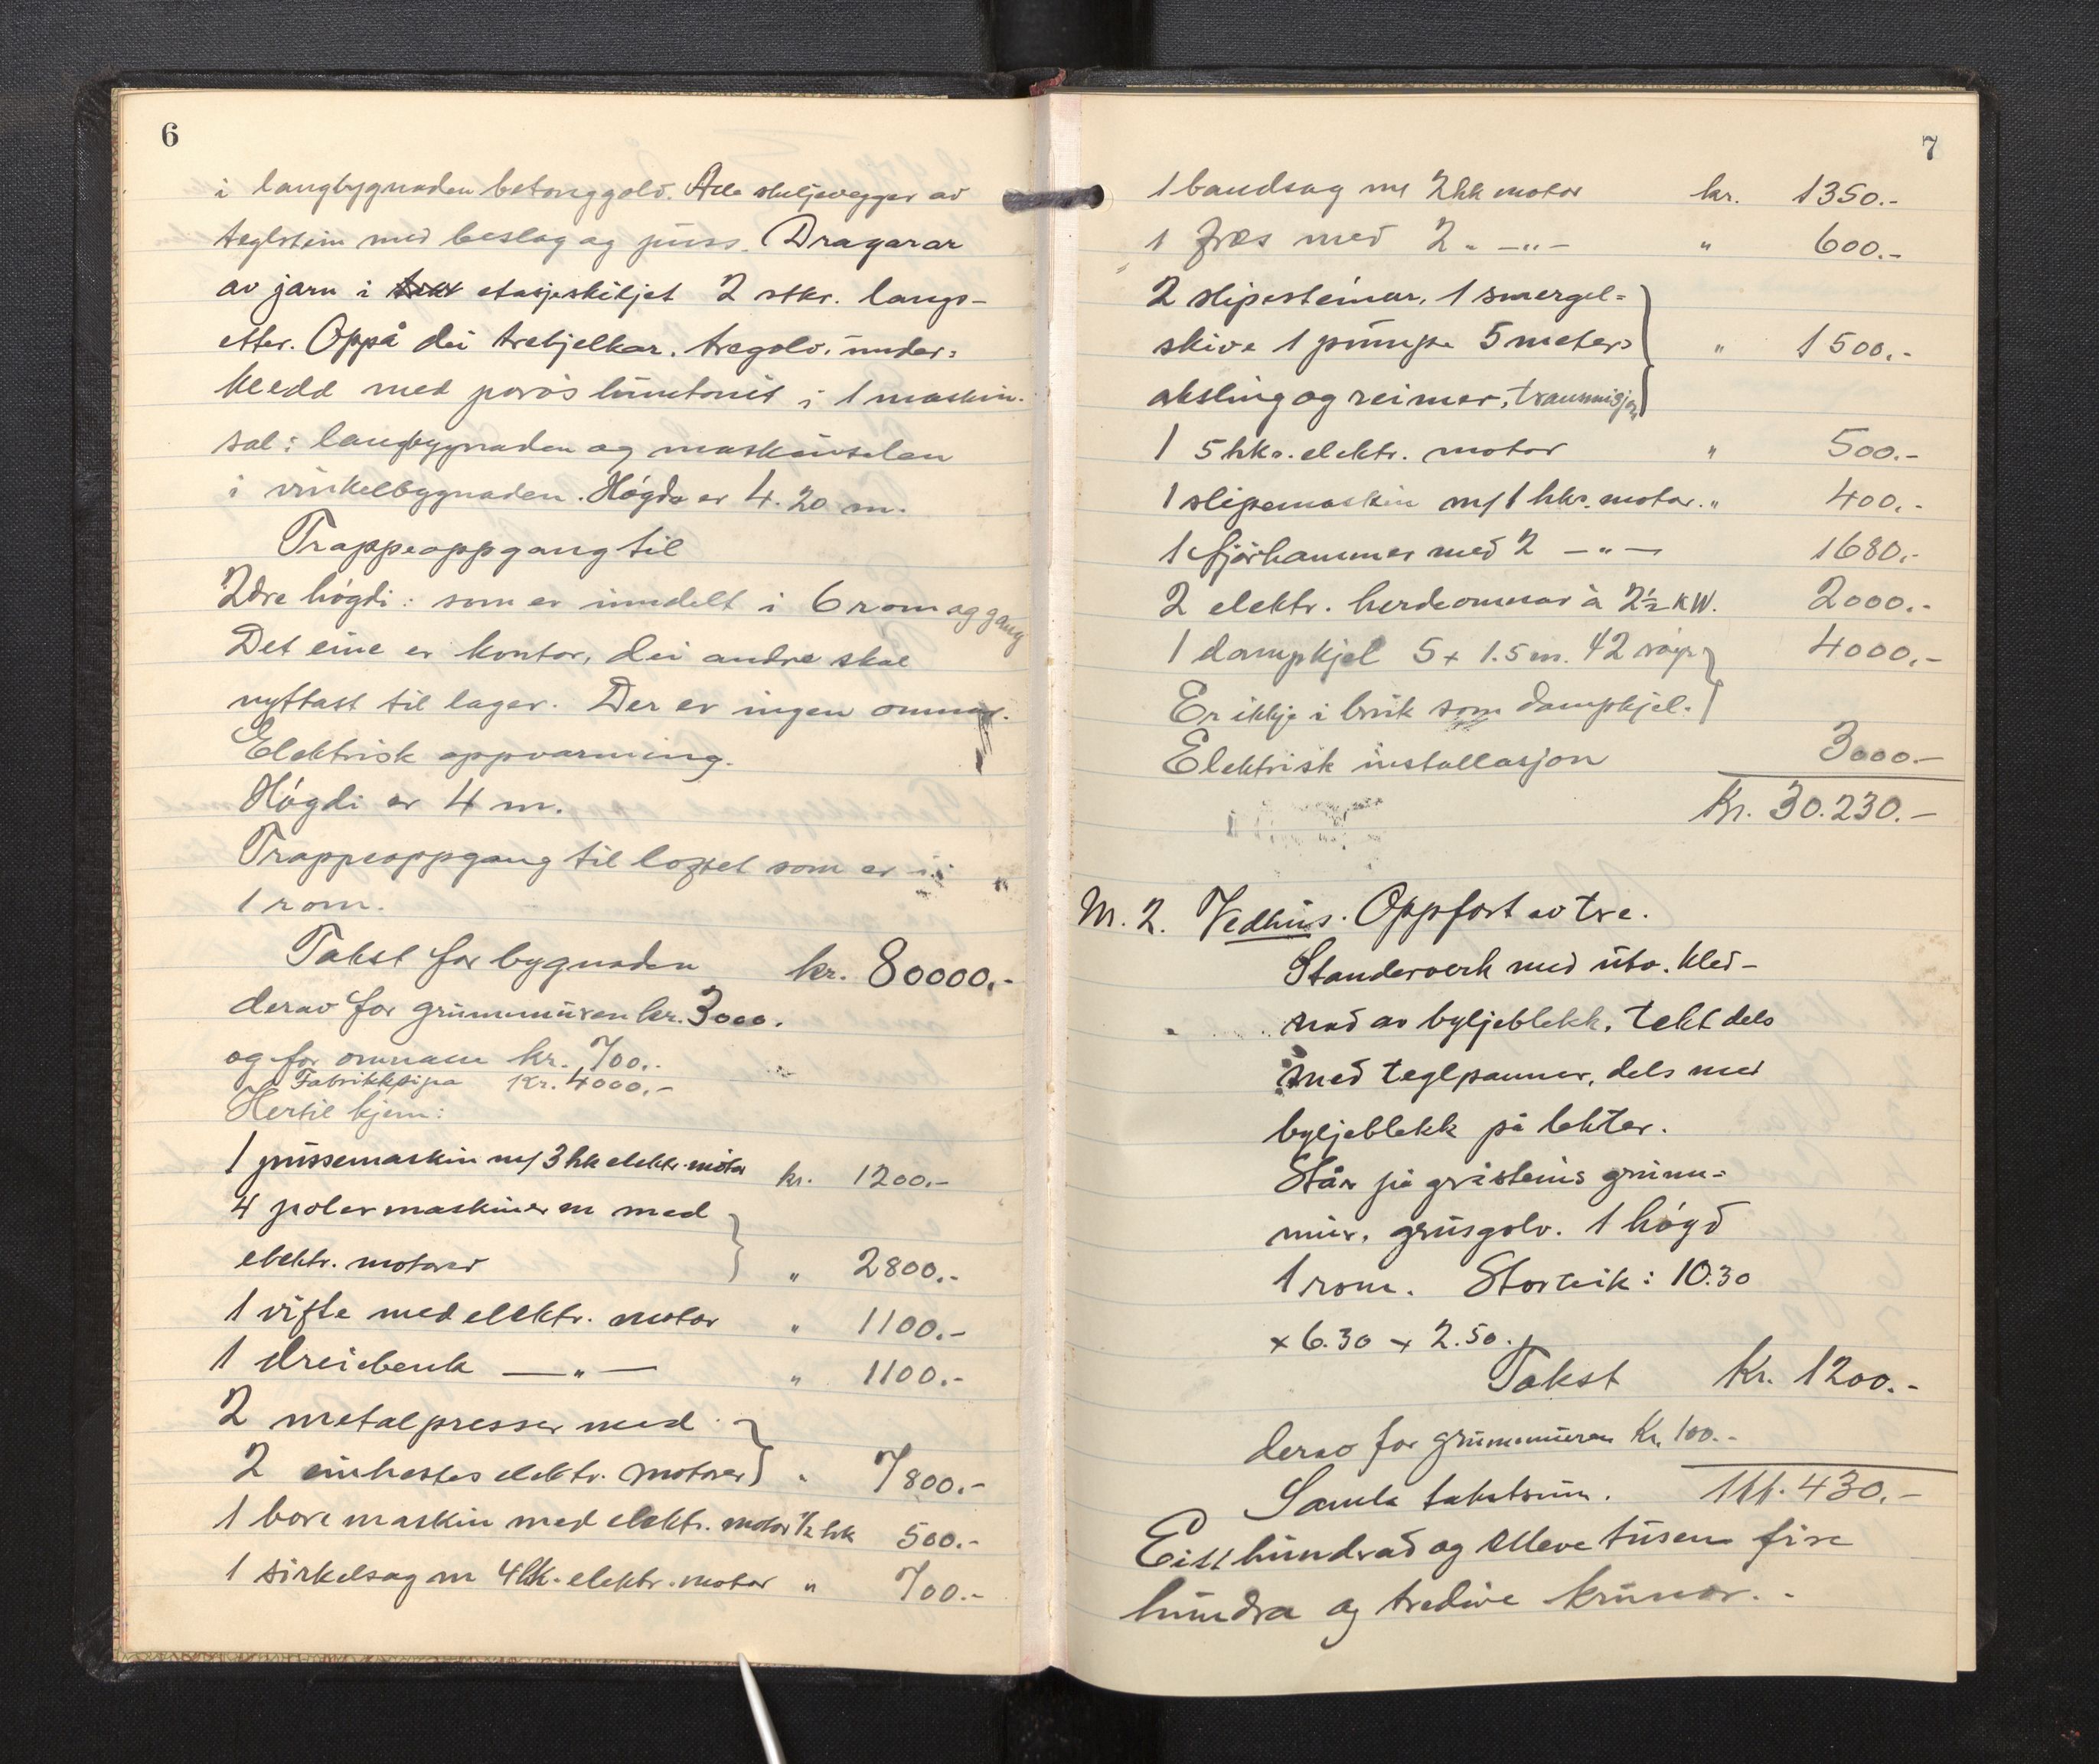 6
i langbygnaden betonggolv. Alle skiljevegger av
teglstein med beslag og puss. Dragarar
av jarn i etasjeskiljet 2 stkr. langs-
etter. Oppå dei trebjelkar. tregolv, under-
kledd med porøs huntonit i 1 maskin-
sal i langbygnaden og maskinsalen
i vinkelbygnaden. Høgda er 4.20 m.
Trappeoppgang til
2dre høgdi: som er inndelt i 6 rom og gang
Det eine er kontor, dei andre skal
nyttast til lager. Der er ingen omnar.
Elektrisk oppvarming.
Høgdi er 4 m.
Trappeoppgang til loftet som er i
1 rom.
Takst for bygnaden kr. 80000.-
derav for grunnmuren kr. 3000.
og for omnam kr. 700..
Fabrikkpipa Kr. 4000.-
Hertil kjem:
1 pussemaskin m/ 3 hk elektr. motor kr. 1200.-
4 polermaskiner m med
elektr. motorar " 2800.-
1 vifte med elektr. motor " 1100.-
1 dreiebenk — " — " 1100.-
2 metalpresser med
2 einhestes elektr. motorer " 7800.-
1 boremaskin med elektr. motor 1/2 hk 500.-
1 sirkelsag m 4 hk. elektr. motor " 700.-
7
1 bandsag m/ 2 hk motor kr. 1350.-
1 fræs med 2 " — " — " 600.-
2 slipesteinar, 1 smergel-
skive 1 pumpe 5 meter
aksling og reimer, transmisjon " 1500.-
1 5 hkr. elektr. motor " 500.-
1 slipemaskin m/ 1 hkr. motor. " 400.-
1 fjørhammer med 2 — " — 1680.-
2 elektr. herdeomnar à 2½ KW. 2000.-
1 dampkjel 5 x 1.5 m. 42 rør 4000.-
Er ikkje i bruk som dampkjel.
Elektrisk installasjon 3000.-
Kr. 30.230.-
M. 2. Vedhus. Oppført av tre.
Standerverk med utv. kled-
nad av bylgjeblekk, tekt dels
med teglpanner, dels med
bylgjeblekk på lekter.
Står på gråsteins grunn-
mur, grusgolv. 1 høgd
1 rom. Storleik: 10.30
x 6.30 x 2.50.
Takst Kr. 1200.-
derav for grunnmuren Kr. 100.-
Samla takstsum. 111.430.-
Eitt hundrad og elleve tusen fire
hundra og tredive kronor. -